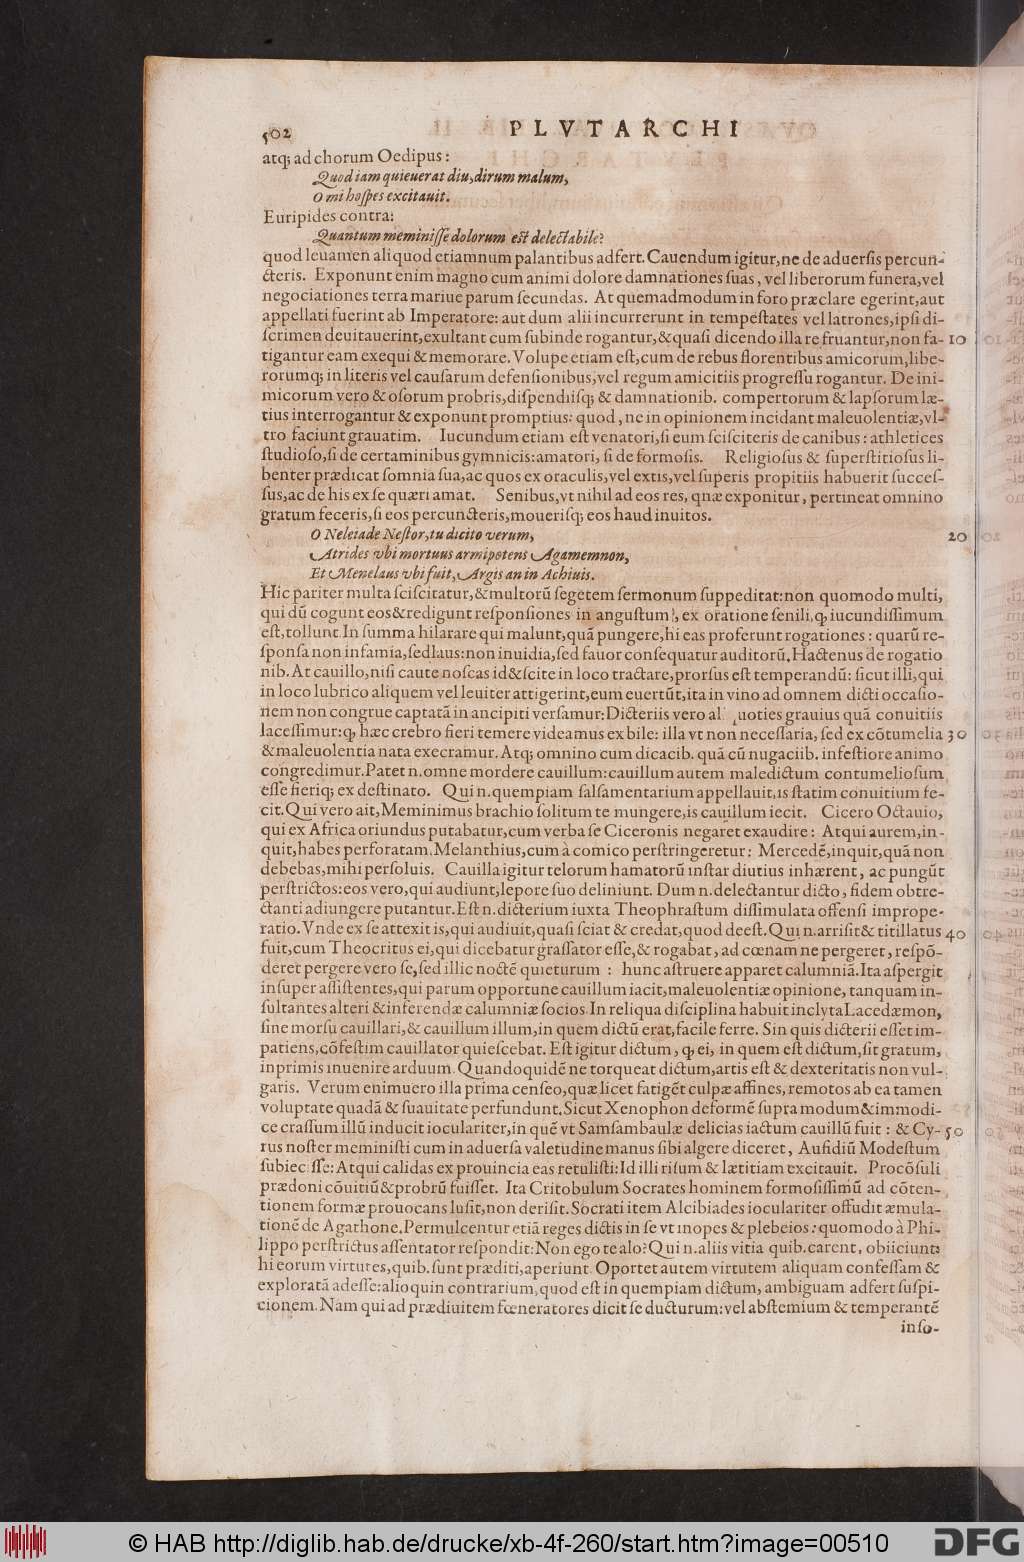 502 PLVTARCHI
atq; ad chorum Oedipus:
Quod iam quieuerat diu, dirum malum,
O mi hoſpes excitauit.
Euripides contra:
Quantum meminiſſe dolorum est delectabile?
quod leuamen aliquod etiamnum palantibus adfert. Cauendum igitur, ne de aduerſis percun-
cteris. Exponunt enim magno cum animi dolore damnationes ſuas, vel liberorum funera, vel
negociationes terra mariue parum ſecundas. At quemadmodum in foro præclare egerint, aut
appellati fuerint ab Imperatore: aut dum alii incurrerunt in tempeſtates vel latrones, ipſi di-
ſcrimen deuitauerint, exultant cum ſubinde rogantur, & quaſi dicendo illa re fruantur, non fa- 10
tigantur eam exequi & memorare. Volupe etiam eſt, cum de rebus florentibus amicorum, libe-
rorumq; in literis vel cauſarum defenſionibus, vel regum amicitiis progreſſu rogantur. De ini-
micorum vero & oſorum probris, diſpendiiſq; & damnationib. compertorum & lapſorum læ-
tius interrogantur & exponunt promptius: quod, ne in opinionem incidant maleuolentiæ, vl-
tro faciunt grauatim. Iucundum etiam eſt venatori, ſi eum ſciſciteris de canibus: athletices
ſtudioſo, ſi de certaminibus gymnicis: amatori, ſi de formoſis. Religioſus & ſuperſtitioſus li-
benter prædicat ſomnia ſua, ac quos ex oraculis, vel extis, vel ſuperis propitiis habuerit ſucceſ-
ſus, ac de his ex ſe quæri amat. Senibus, vt nihil ad eos res, quæ exponitur, pertineat omnino
gratum feceris, ſi eos percuncteris, moueriſq; eos haud inuitos.
O Neleiade Neſtor, tu dicito verum, 20
Atrides vbi mortuus armipotens Agamemnon,
Et Menelaus vbi fuit, Argis an in Achiuis.
Hic pariter multa ſciſcitatur, & multorū ſegetem ſermonum ſuppeditat: non quomodo multi,
qui dū cogunt eos & redigunt reſponſiones in anguſtum, ex oratione ſenili, ꝙ iucundiſſimum
eſt, tollunt. In ſumma hilarare qui malunt, quā pungere, hi eas proferunt rogationes: quarū re-
ſponſa non infamia, ſed laus: non inuidia, ſed fauor conſequatur auditorū. Hactenus de rogatio
nib. At cauillo, niſi caute noſcas id & ſcite in loco tractare, prorſus eſt temperandū: ſicut illi, qui
in loco lubrico aliquem vel leuiter attigerint, eum euertūt, ita in vino ad omnem dicti occaſio-
nem non congrue captatā in ancipiti verſamur: Dicteriis vero al uoties grauius quā conuitiis
laceſſimur: ꝙ hæc crebro fieri temere videamus ex bile: illa vt non neceſſaria, ſed ex cōtumelia 30
& maleuolentia nata execramur. Atq; omnino cum dicacib. quā cū nugaciib. infeſtiore animo
congredimur. Patet n. omne mordere cauillum: cauillum autem maledictum contumelioſum
eſſe fieriq; ex deſtinato. Qui n. quempiam ſalſamentarium appellauit, is ſtatim conuitium fe-
cit. Qui vero ait, Meminimus brachio ſolitum te mungere, is cauillum iecit. Cicero Octauio,
qui ex Africa oriundus putabatur, cum verba ſe Ciceronis negaret exaudire: Atqui aurem, in-
quit, habes perforatam. Melanthius, cum à comico perſtringeretur: Mercedē, inquit, quā non
debebas, mihi perſoluis. Cauilla igitur telorum hamatorū inſtar diutius inhærent, ac pungūt
perſtrictos: eos vero, qui audiunt, lepore ſuo deliniunt. Dum n. delectantur dicto, fidem obtre-
ctanti adiungere putantur. Eſt n. dicterium iuxta Theophraſtum diſſimulata offenſi imprope-
ratio. Vnde ex ſe attexit is, qui audiuit, quaſi ſciat & credat, quod deeſt. Qui n. arriſit & titillatus 40
fuit, cum Theocritus ei, qui dicebatur graſſator eſſe, & rogabat, ad cœnam ne pergeret, reſpō-
deret pergere vero ſe, ſed illic noctē quieturum: hunc aſtruere apparet calumniā. Ita aſpergit
inſuper aſſiſtentes, qui parum opportune cauillum iacit, maleuolentiæ opinione, tanquam in-
ſultantes alteri & inferendæ calumniæ ſocios. In reliqua diſciplina habuit inclyta Lacedæmon,
ſine morſu cauillari, & cauillum illum, in quem dictū erat, facile ferre. Sin quis dicterii eſſet im-
patiens, cōfeſtim cauillator quieſcebat. Eſt igitur dictum, ꝙ ei, in quem eſt dictum, ſit gratum,
inprimis inuenire arduum. Quandoquidē ne torqueat dictum, artis eſt & dexteritatis non vul-
garis. Verum enimuero illa prima cenſeo, quæ licet fatigēt culpæ affines, remotos ab ea tamen
voluptate quadā & ſuauitate perfundunt. Sicut Xenophon deformē ſupra modum & immodi-
ce craſſum illū inducit ioculariter, in quē vt Samſambaulæ delicias iactum cauillū fuit: & Cy- 50
rus noſter meminiſti cum in aduerſa valetudine manus ſibi algere diceret, Aufidiū Modeſtum
ſubieciſſe: Atqui calidas ex prouincia eas retuliſti: Id illi riſum & lætitiam excitauit. Procōſuli
prædoni cōuitiū & probrū fuiſſet. Ita Critobulum Socrates hominem formoſiſſimū ad cōten-
tionem formæ prouocans luſit, non deriſit. Socrati item Alcibiades ioculariter offudit æmula-
tionē de Agathone. Permulcentur etiā reges dictis in ſe vt inopes & plebeios: quomodo à Phi-
lippo perſtrictus aſſentator reſpondit: Non ego te alo? Qui n. aliis vitia quib. carent, obiiciunt:
hi eorum virtutes, quib. ſunt præditi, aperiunt. Oportet autem virtutem aliquam confeſſam &
exploratā adeſſe: alioquin contrarium, quod eſt in quempiam dictum, ambiguam adfert ſuſpi-
cionem. Nam qui ad prædiuitem fœneratores dicit ſe ducturum: vel abſtemium & temperantē
inſo-
© HAB http://diglib.hab.de/drucke/xb-4f-260/start.htm?image=00510
DFG